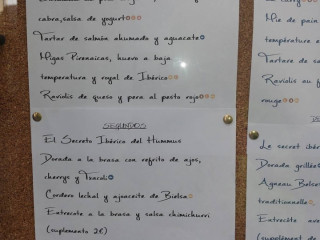 cabra, salsa de yogurt
Tartar de salmón ahumado y aguacate
Migas Pirenaicas, huevo a baja
temperatura y royal de Ibérico
Raviolis de queso y pera al pesto rojo
SEGUNDOS
El Secreto Ibérico del Hummus
Dorada a la brasa con refrito de ajos,
cherrys y Txacoli
Cordero lechal y ajoaceite de Bielsa
Entrecote a la brasa y salsa chimichurri
(suplemento 2€)
carry
Mie de pain
températur
Tartare de sa
Raviolis au f
rouge
DE
Le secret ibér
Dorada grillée
Agneau Belce
traditionnelle
Entrecôte ave
(supplément de